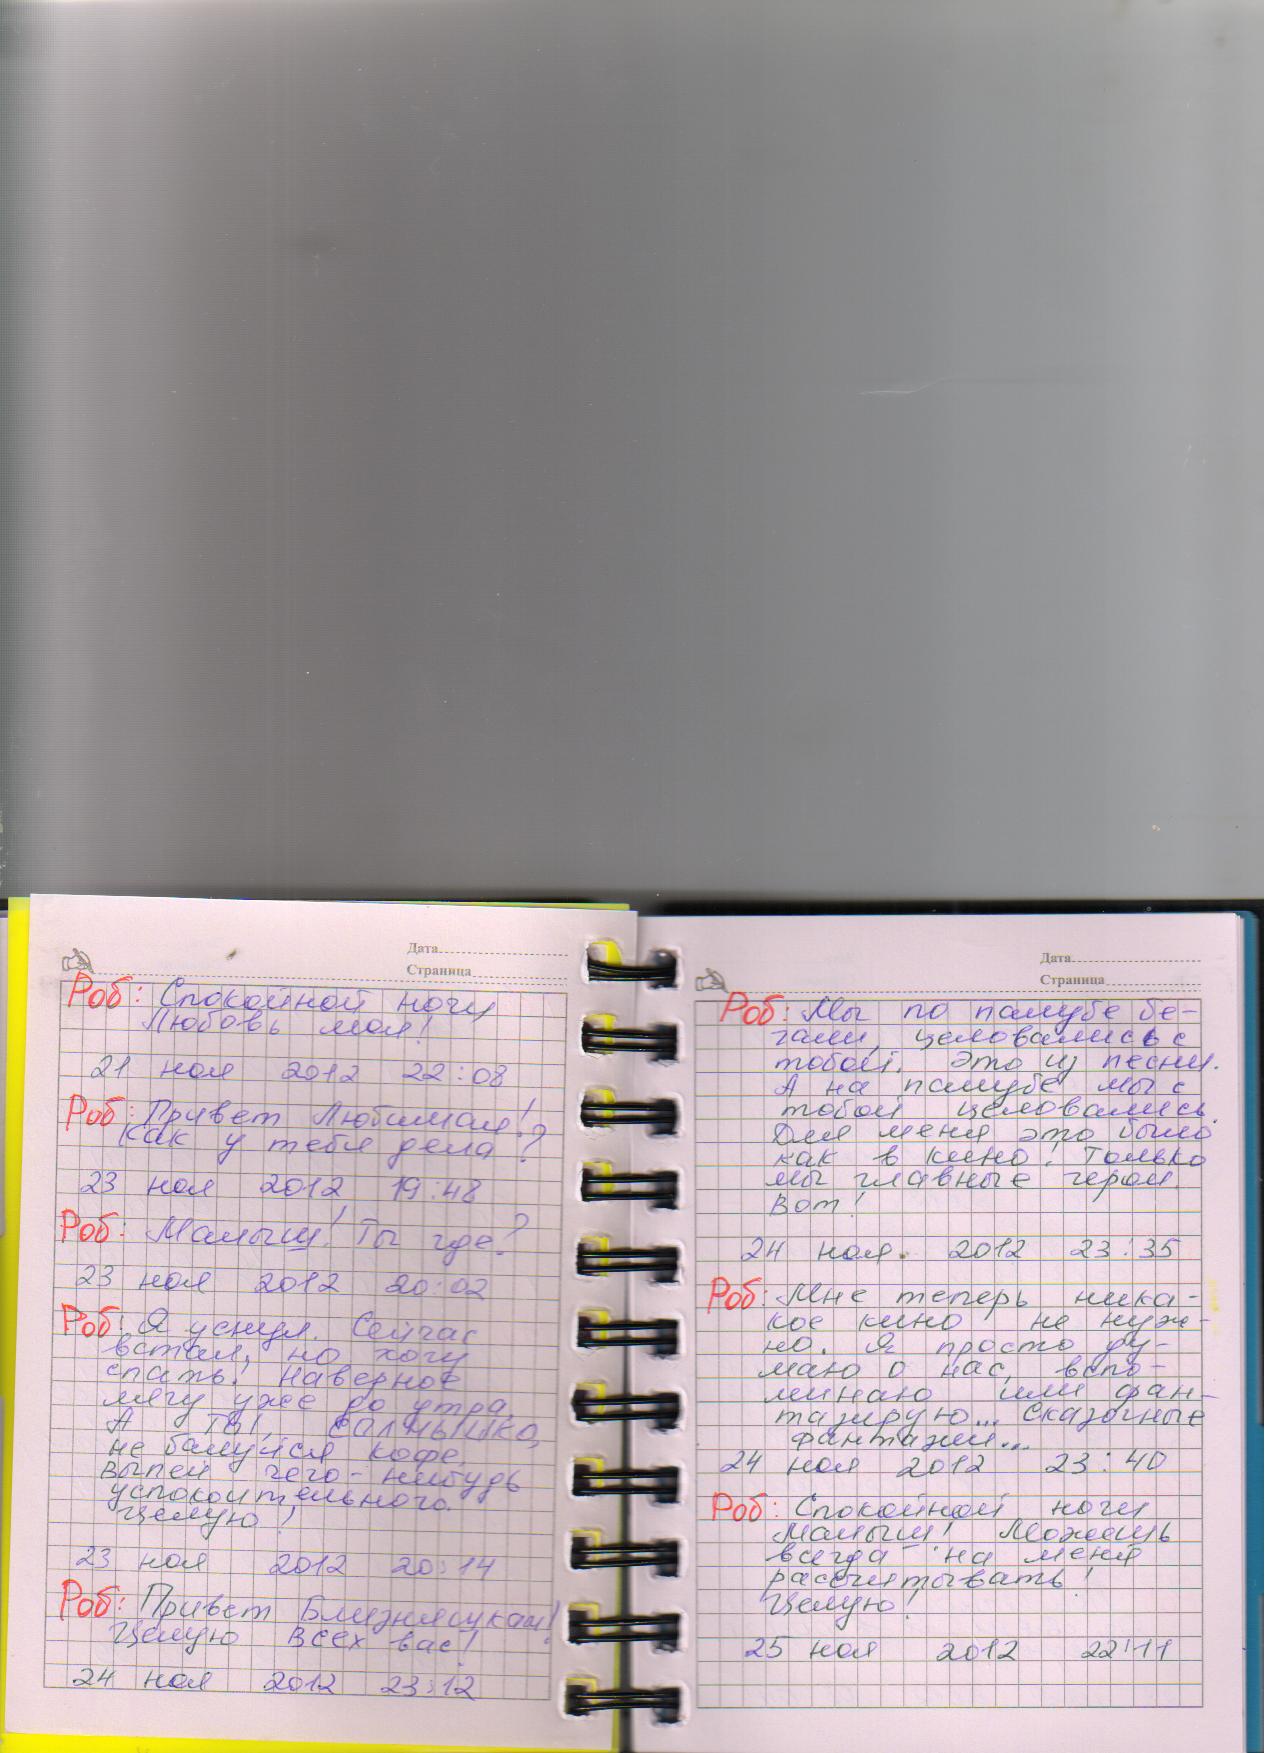 Дата
Страница
Роб: Спокойной ночи
Любовь моя!
21 ноя 2012 22:08
Роб: Привет Любимая!
Как у тебя дела?
23 ноя 2012 19:48
Роб: Малыш! Ты где?
23 ноя 2012 20:02
Роб: Я уснул. Сейчас
встал, но хочу
спать! Наверное
лягу уже до утра
А ТЫ, солнышко,
не балуйся кофе
выпей чего-нибудь
успокоительного.
Целую!
23 ноя 2012 20:14
Роб: Привет Близняшкам!
Целую всех вас!
24 ноя 2012 23:12
Дата
Страница
Роб: Мы по палубе бе-
гали, целовались с
тобой. Это из песни.
А на палубе мы с
тобой целовались.
Для меня это было
как в кино! Только
мы главные герои.
Вот!
24 ноя. 2012 23:35
Роб: Мне теперь ника-
кое кино не нуж-
но. Я просто ду-
маю о нас, вспо-
минаю или фан-
тазирую... Сказочные
фантазии...
24 ноя 2012 23:40
Роб: Спокойной ночи
Малыш! Можешь
всегда на меня
рассчитывать!
Целую!
25 ноя 2012 22:11